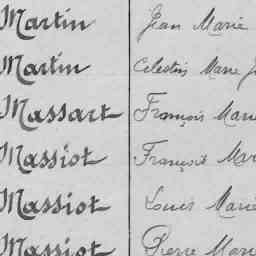 Martin Jean Marie
Martin Celestin Marie J
Massart François Marie
Massiot François Mari
Massiot Louis Marie
Massiot Pierre Marie